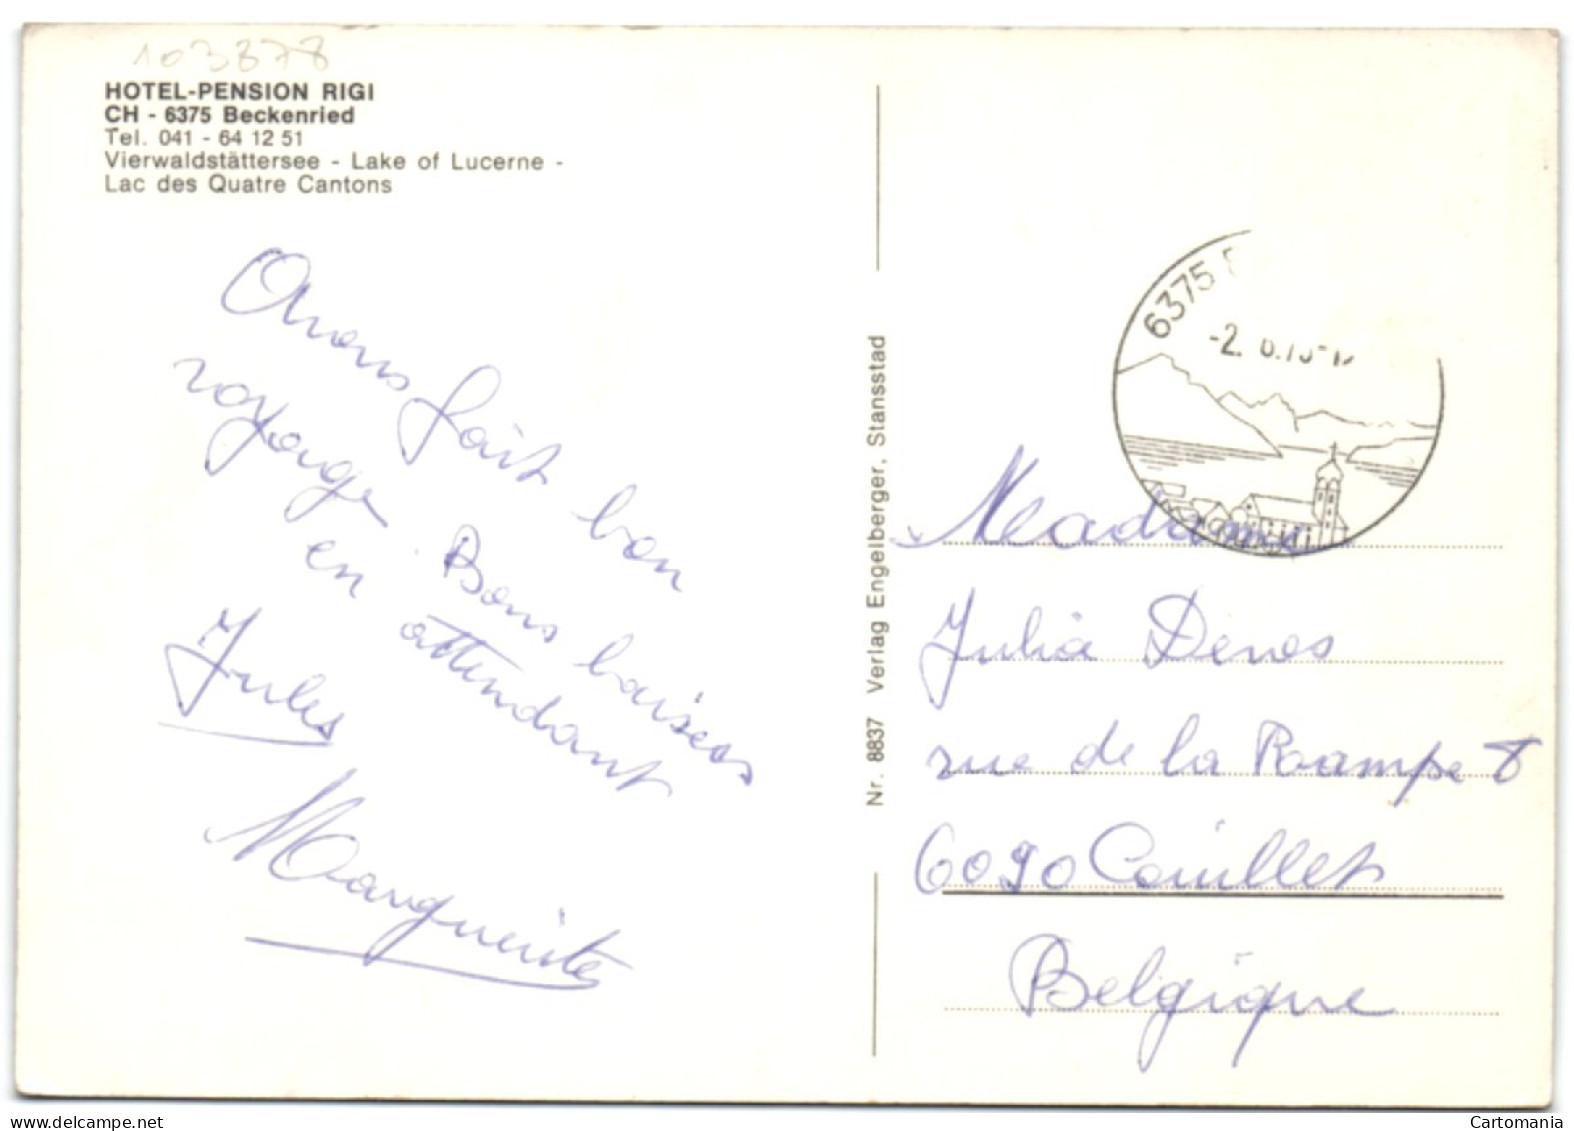 103878
HOTEL-PENSION RIGI
CH - 6375 Beckenried
Tel. 041 - 64 12 51
Vierwaldstättersee - Lake of Lucerne -
Lac des Quatre Cantons
Avons fait bon
voyage. Bons baisers
en attendant
Jules
Marguerite
Nr. 8837 Verlag Engelberger, Stansstad
6375
-2.
Madame
Julia Denos
rue de la Rampe 8
6090 Couillet
Belgique
www.delcampe.net
Cartomania